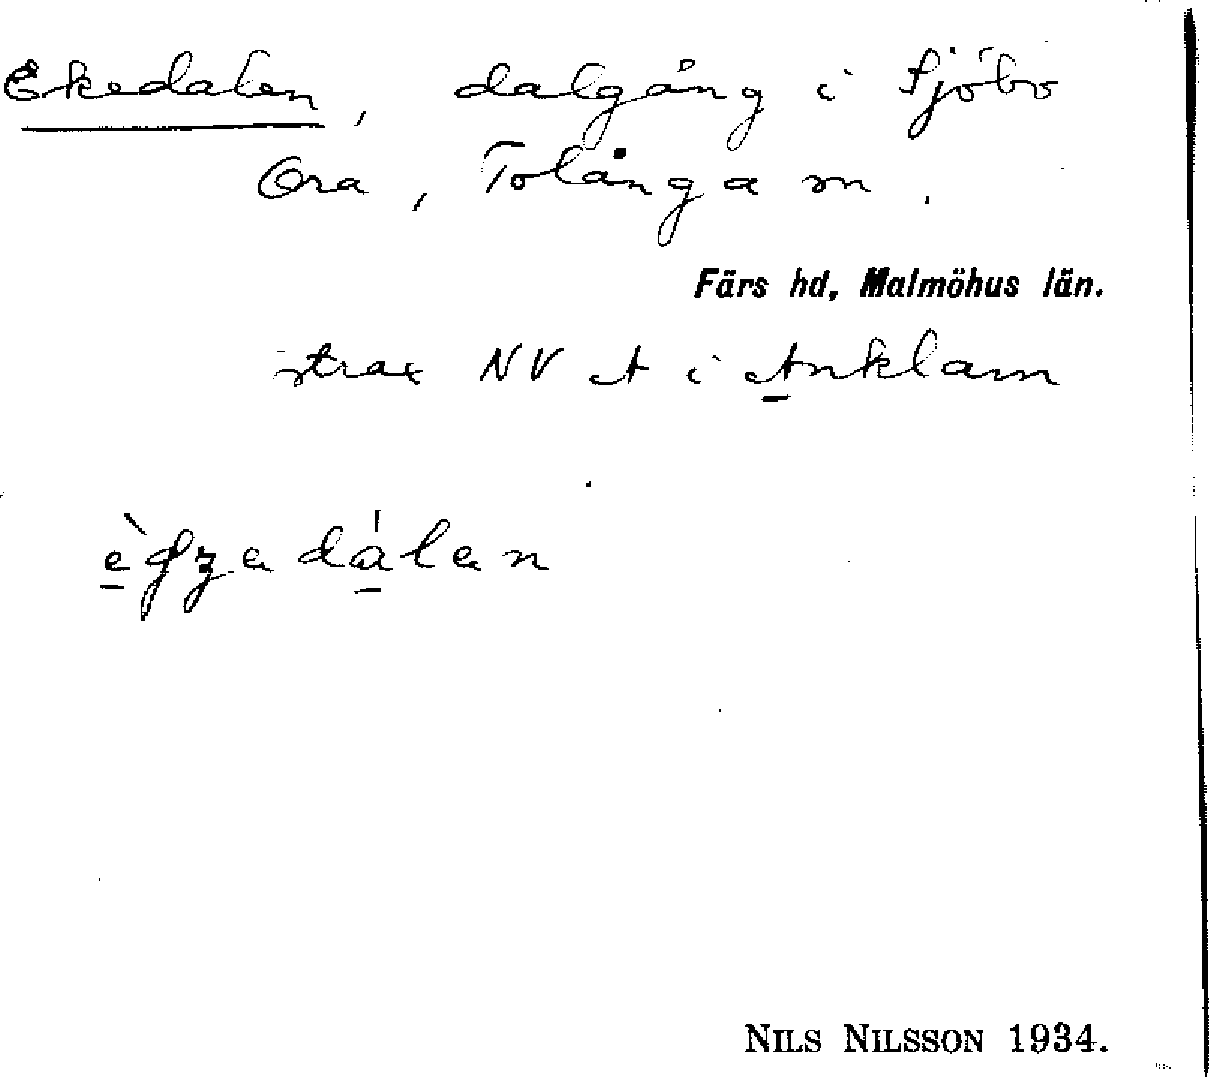 Ekedalen, dalgång i Sjöbo
Ora, Tolånga sn.
Färs hd, Malmöhus län.
strax NV A i Anklam
NILS NILSSON 1934.